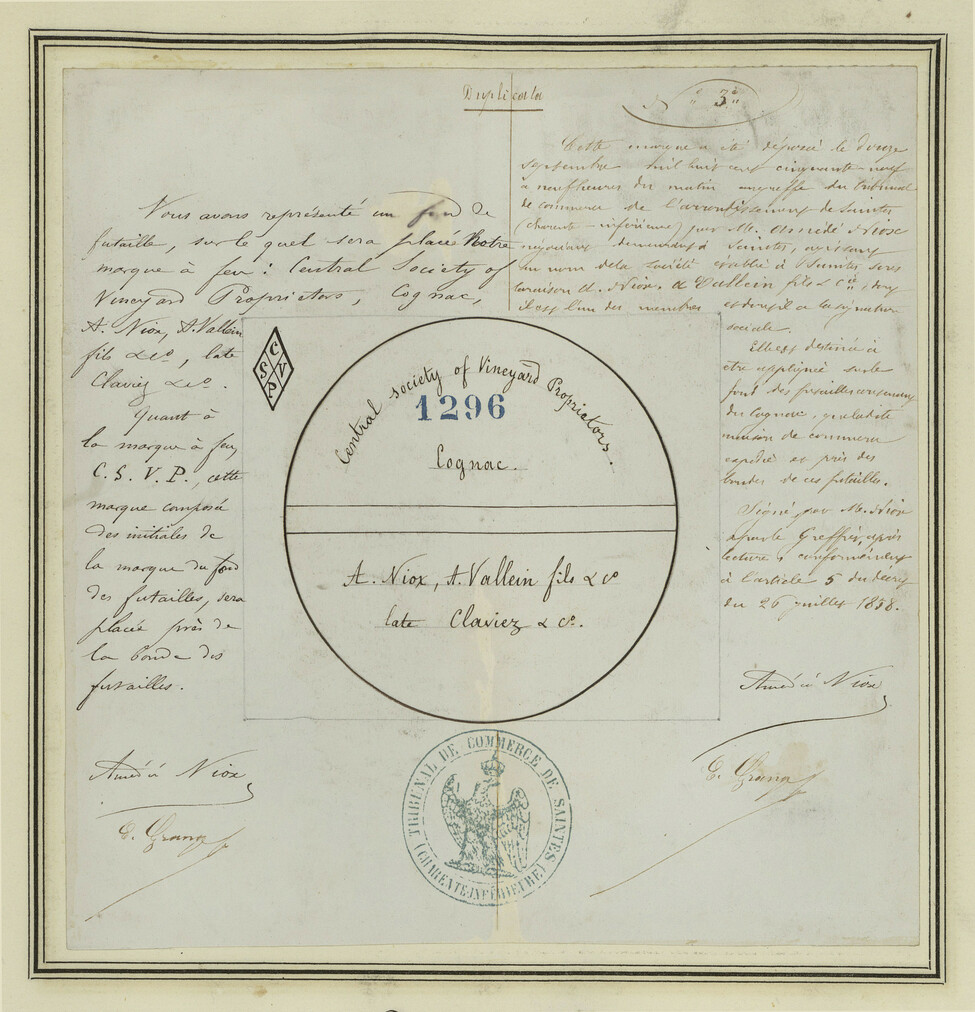 Duplicata
" 3 "
Nous avons représenté un fond de
futaille, sur le quel sera placée Notre
marque à feu : Central Society of
Vineyard Proprietors, Cognac,
A. Niox, A. Vallein
fils & Co, late
Claviez & Co.
Quant à
la marque à feu,
C. S. V. P., cette
marque composée
des initiales de
la marque du fond
des futailles, sera
placée près de
la bonde des
futailles.
Amédée Niox
Cette marque a été déposée le douze
septembre mil huit cent cinquante neuf
à neuf heures du matin au greffe du tribunal
de commerce de l'arrondissement de Saintes
(Charente inférieure) par M. Amédée Niox
négociant demeurant à Saintes, agissant
au nom de la société établie à Saintes sous
la raison A. Niox, A. Vallein fils & Cie, dont
il est l'un des membres et dont il a la signature
sociale.
Elle est destinée à
être appliquée sur le
fond des futailles contenant
du Cognac, par la dite
maison de commerce
expédié et près des
bondes de ces futailles.
Signé par M. Niox
et par le Greffier, après
lecture, conformément
à l'article 5 du décret
du 26 juillet 1858.
Amédée Niox
C
S V
P
Central society of Vineyard Proprietors.
1296
Cognac.
A. Niox, A. Vallein fils & Co
late Claviez & Co.
TRIBUNAL DE COMMERCE DE SAINTES
(CHARENTE INFÉRIEURE)